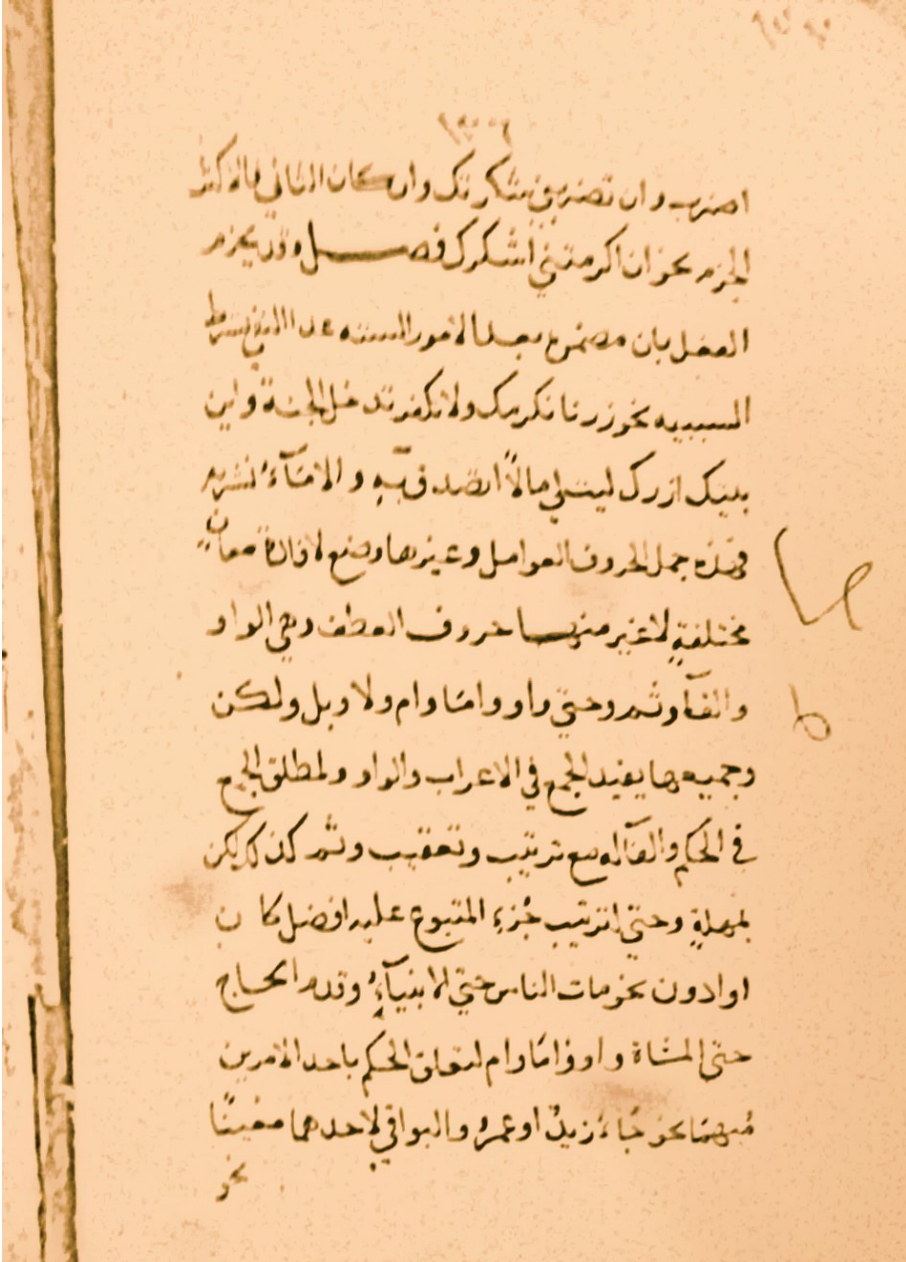 اضرب وان تضربني شكرتك وان كان الثاني فالاكثر
الجزم نحو ان اكرمتني اشكرك فصل وقد يجزم
الفعل بان مضمرة بعد الامور الستة عدا النفي بشرط
السببيه نحو زرنا نكرمك ولا تكفر تدخل الجنة واين
بيتك ازرك ليت لي مالاً اتصدق به و الامتآء
فهذه جمل الحروف العوامل وغيرها وضع لافادة معانٍ
مختلفةٍ لا غير منها حروف العطف وهي الواو
والفآ وثم وحتي واو واما وام ولا وبل ولكن
وجميعها يفيد الجمع في الاعراب والواو لمطلق الجمع
في الحكم والفآ له مع ترتيب وتعقيب وثم كذلك لكن
بمهلةٍ وحتي لترتيب جُزءِ المتبوع عليه افضل كان
او ادون نحو مات الناس حتي الانبيآءُ وقدم الحاج
حتى المشاة واو واما وام لتعلق الحكم باحد الامرين
مُبهمًا نحو جاءَ زيدٌ او عمرو والبواقي لاحدهما معينًا
نحو